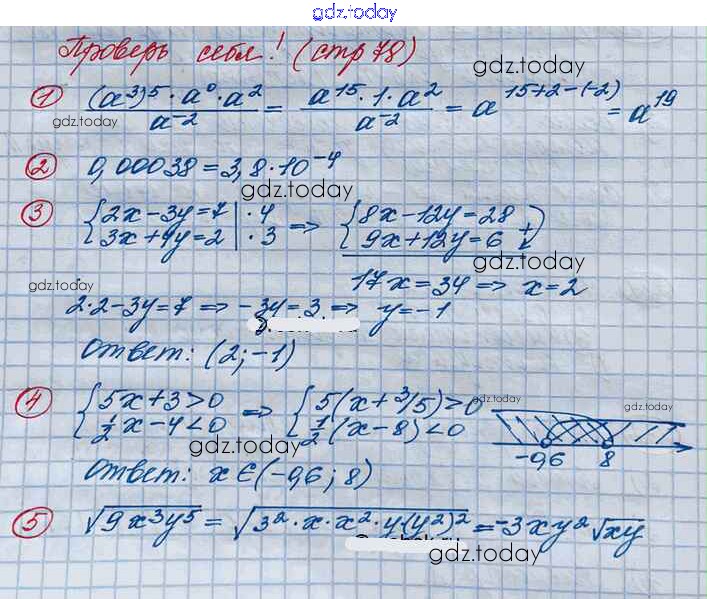 gdz.today
Проверь себя! (стр 78)
gdz.today
① (a³)⁵ · a⁰ · a² / a⁻² = a¹⁵ · 1 · a² / a⁻² = a¹⁵⁺²⁻⁽⁻²⁾ = a¹⁹
gdz.today
② 0,00038 = 3,8 · 10⁻⁴
gdz.today
③ { 2x − 3y = 7 | · 4 ⇒ { 8x − 12y = 28
{ 3x + 4y = 2 | · 3 { 9x + 12y = 6 +
gdz.today
gdz.today
17x = 34 ⇒ x = 2
2·2 − 3y = 7 ⇒ −3y = 3 ⇒ y = −1
Ответ: (2; −1)
④ { 5x + 3 > 0 ⇒ { 5(x + 3/5) > 0
{ ½x − 4 < 0 { ½(x − 8) < 0
gdz.today
gdz.today
−0,6 8
Ответ: x ∈ (−0,6 ; 8)
⑤ √9x³y⁵ = √3² · x · x² · y(y²)² = −3xy²√xy
gdz.today